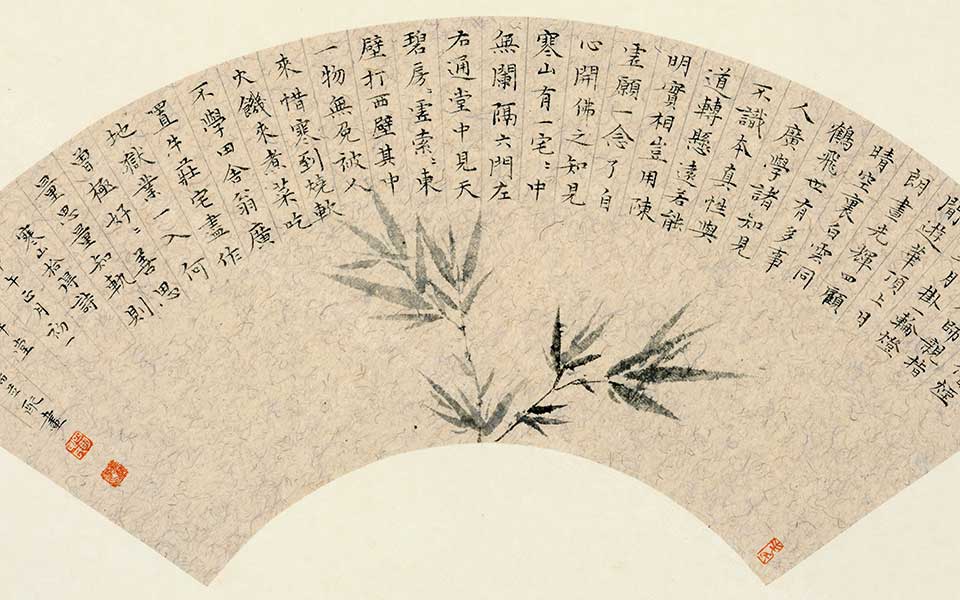 煙
師親指
月掛一輪燈
閒遊華頂上日
朗晝光輝四顧
晴空裏白雲同
鶴飛世有多事
人廣學諸知見
不識本真性與
道轉懸遠若能
明實相豈用陳
虛願一念了自
心開佛之知見
寒山有一宅〻中
無闌隔六門左
右通堂中見天
碧房〻虛索〻東
壁打西壁其中
一物無免被人
來惜寒到燒軟
火饑來煮菜吃
不學田舍翁廣
置牛莊宅盡作
地獄業一入何
曾極好〻善思
量思量知軌則
寒山拾得詩
午正月初一
堂
配畫